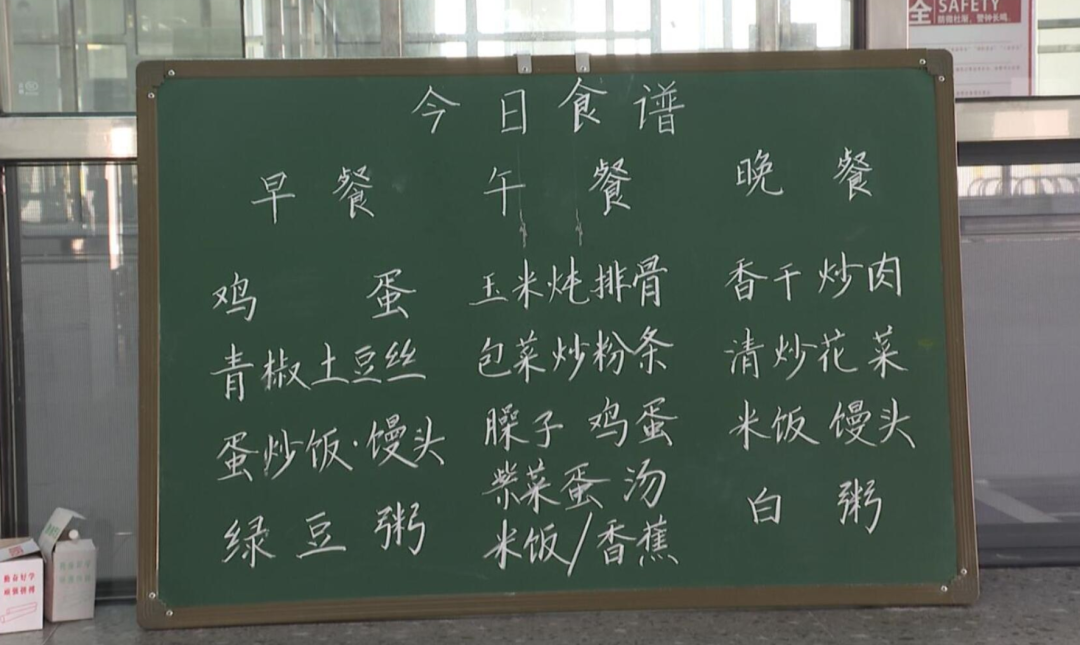 今日食谱
早餐 午餐 晚餐
鸡蛋 玉米炖排骨 香干炒肉
青椒土豆丝 包菜炒粉条 清炒花菜
蛋炒饭·馒头 臊子鸡蛋 米饭馒头
绿豆粥 紫菜蛋汤 白粥
米饭/香蕉
全 SAFETY